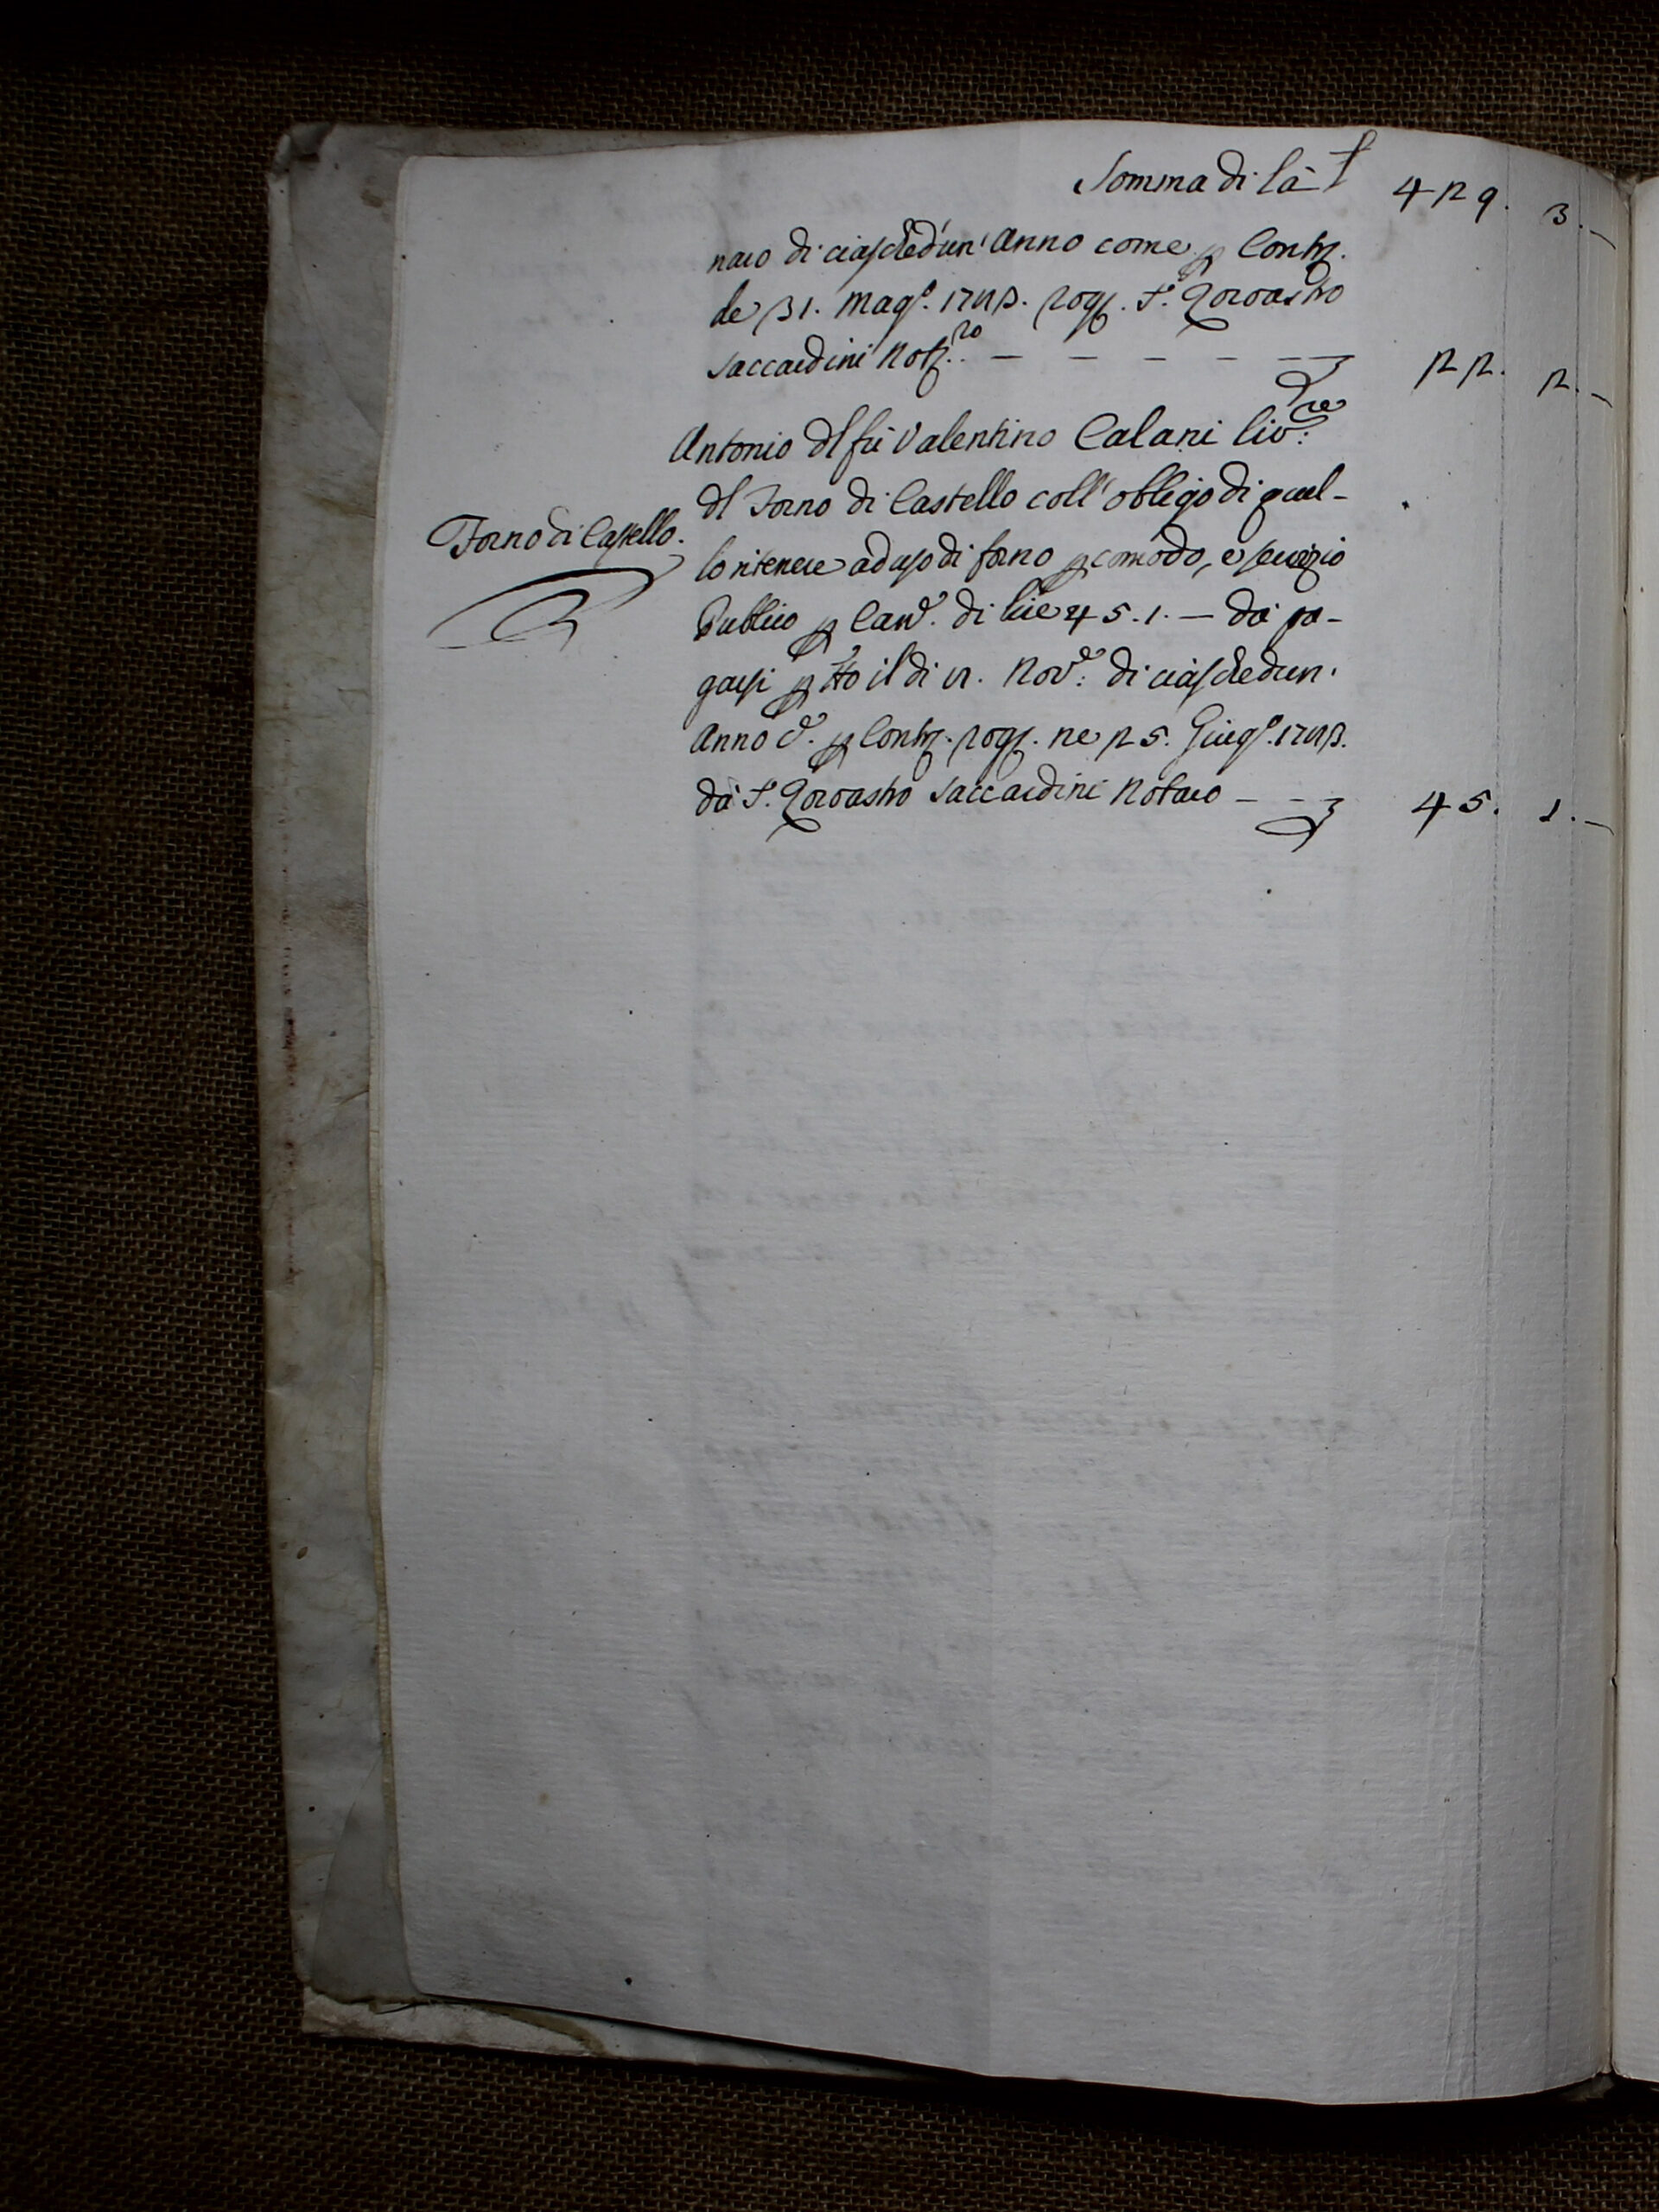 Somma di là £ 429. 3. —
naio di ciaschedun' Anno come p Contr.
de 31. Magg.º 17 rog. S.r Zoroastro
Saccardini Not.ro — — — — — 22. 2. —
Antonio dl fù Valentino Calani liv.re
dl Forno di Castello coll' obligo di quel-
Forno di Castello.
lo ritenere ad uso di forno p comodo, e servizio
Publico p Can.e di lire 45. 1. — da pa-
garsi p tto il di Nov.e di ciaschedun'
Anno p Contr. rog. ne 25. Giug.º
da S.r Zoroastro Saccardini Notaro — — 45. 1. —